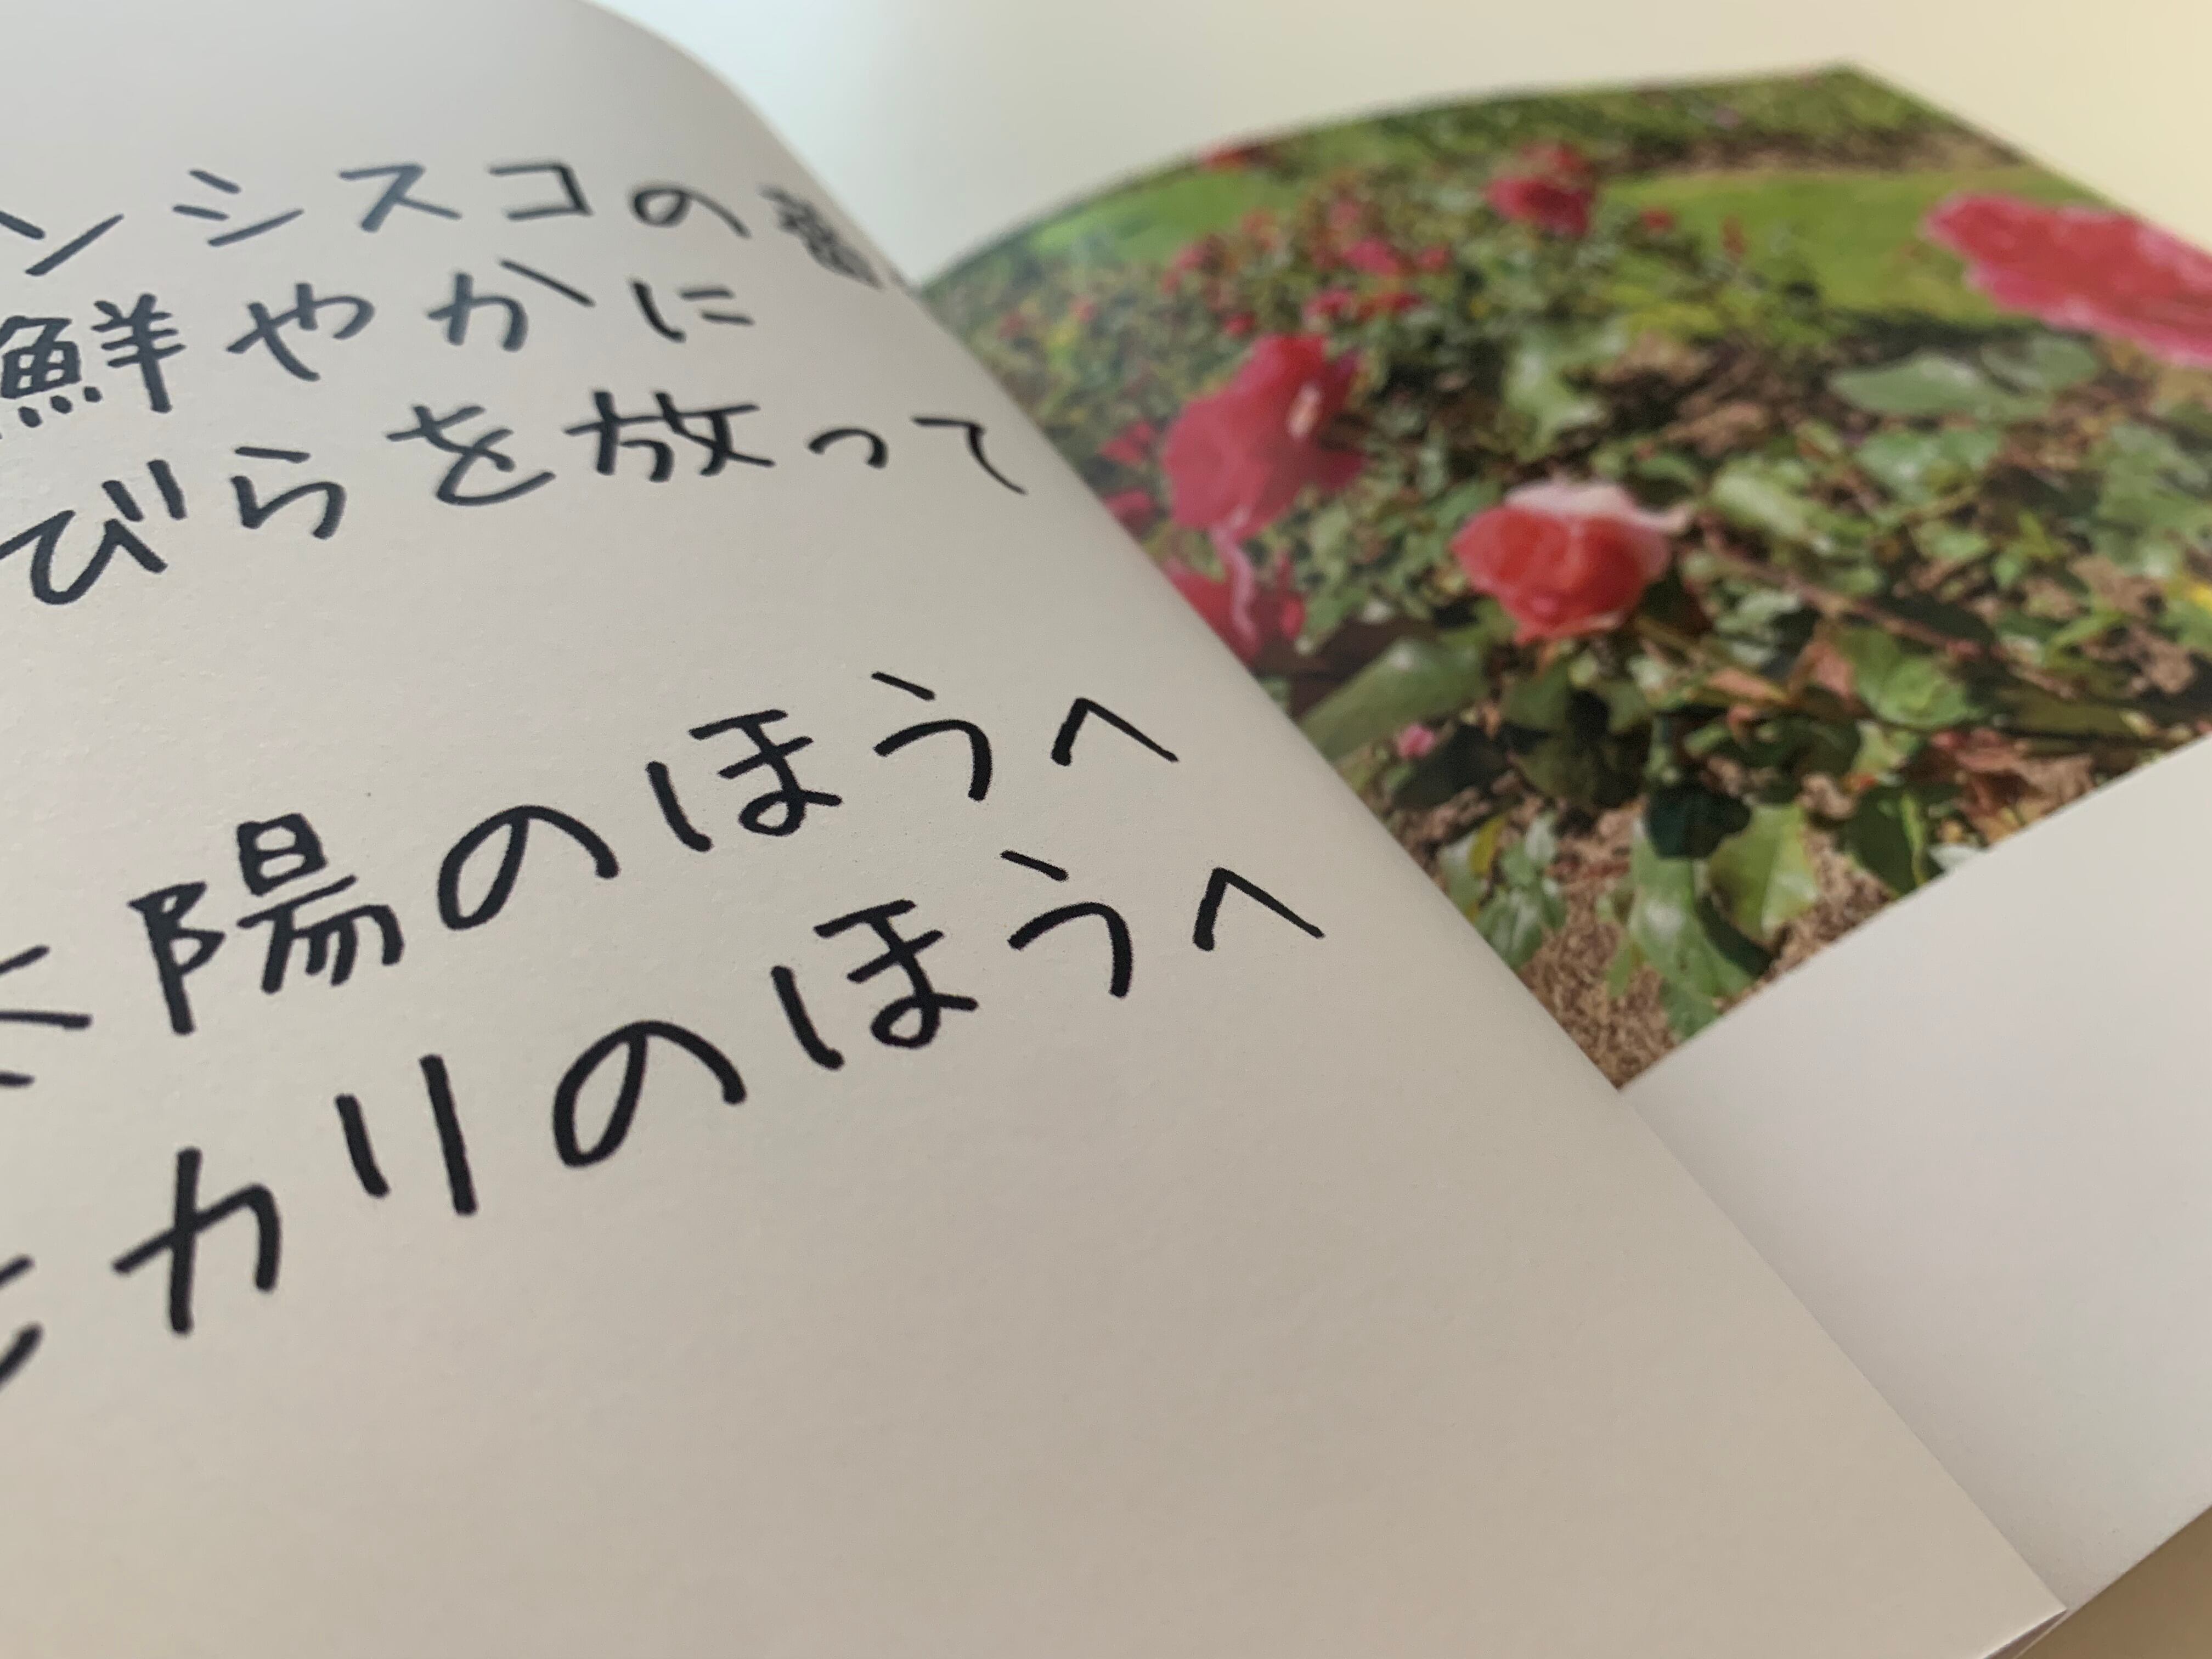 ンシスコの
鮮やかに
びらを放って
太陽のほうへ
ヒカリのほうへ